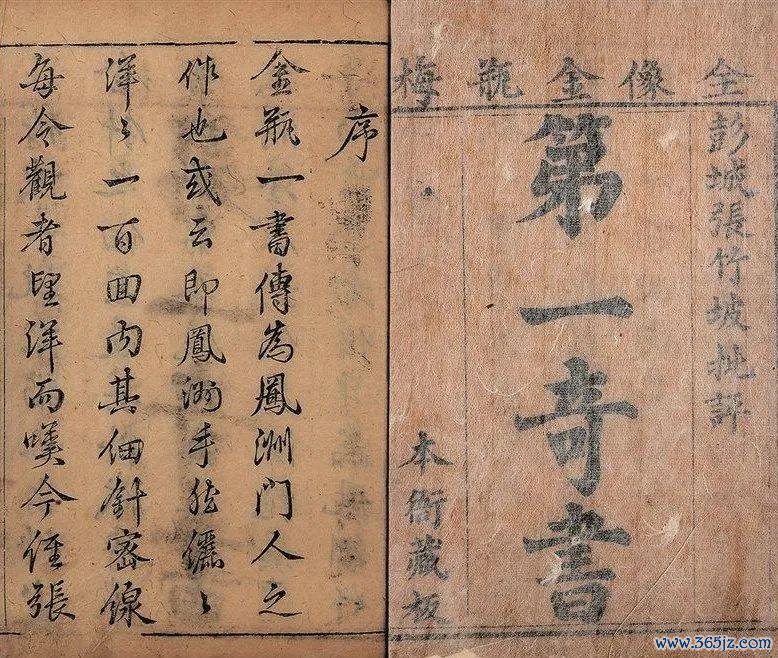 全像金瓶梅
彭城張竹坡批評
第一奇書
本衙藏板
序
金瓶一書傳為鳳洲門人之
作也或云即鳳洲手然儷〻
洋〻一百回内其細針密線
每令觀者望洋而嘆今經張
www.365jz.com